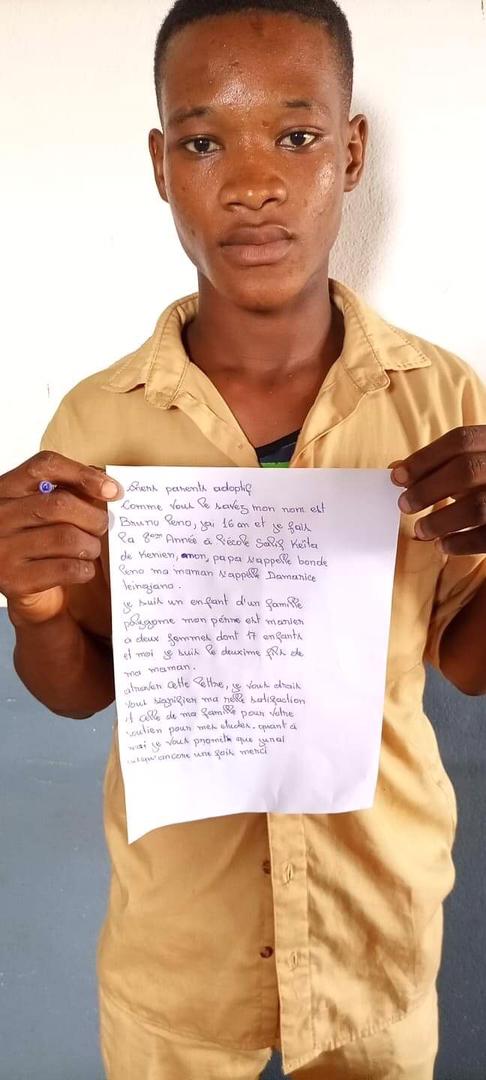 chers parents adoptif
comme vous le savez mon nom est
Bruno Leno, jai 16 an et je fais
la 8eme Année à l'école Salif Keïta
de Kenien, mon, papa s'appelle bonde
Leno ma maman s'appelle Damanice
teingiano.
je suis un enfant d'un famille
polygame mon pérre est marier
a deux femmes dont 17 enfants
et moi je suis le deuxime fils de
ma maman.
atraver cette lettre, je vous drais
vous signifier ma réelle satisfaction
et celle de ma famille pour votre
soutien pour mes etudes. quant à
moi je vous prometk que j'irai
jusqu'ancore une fois merci